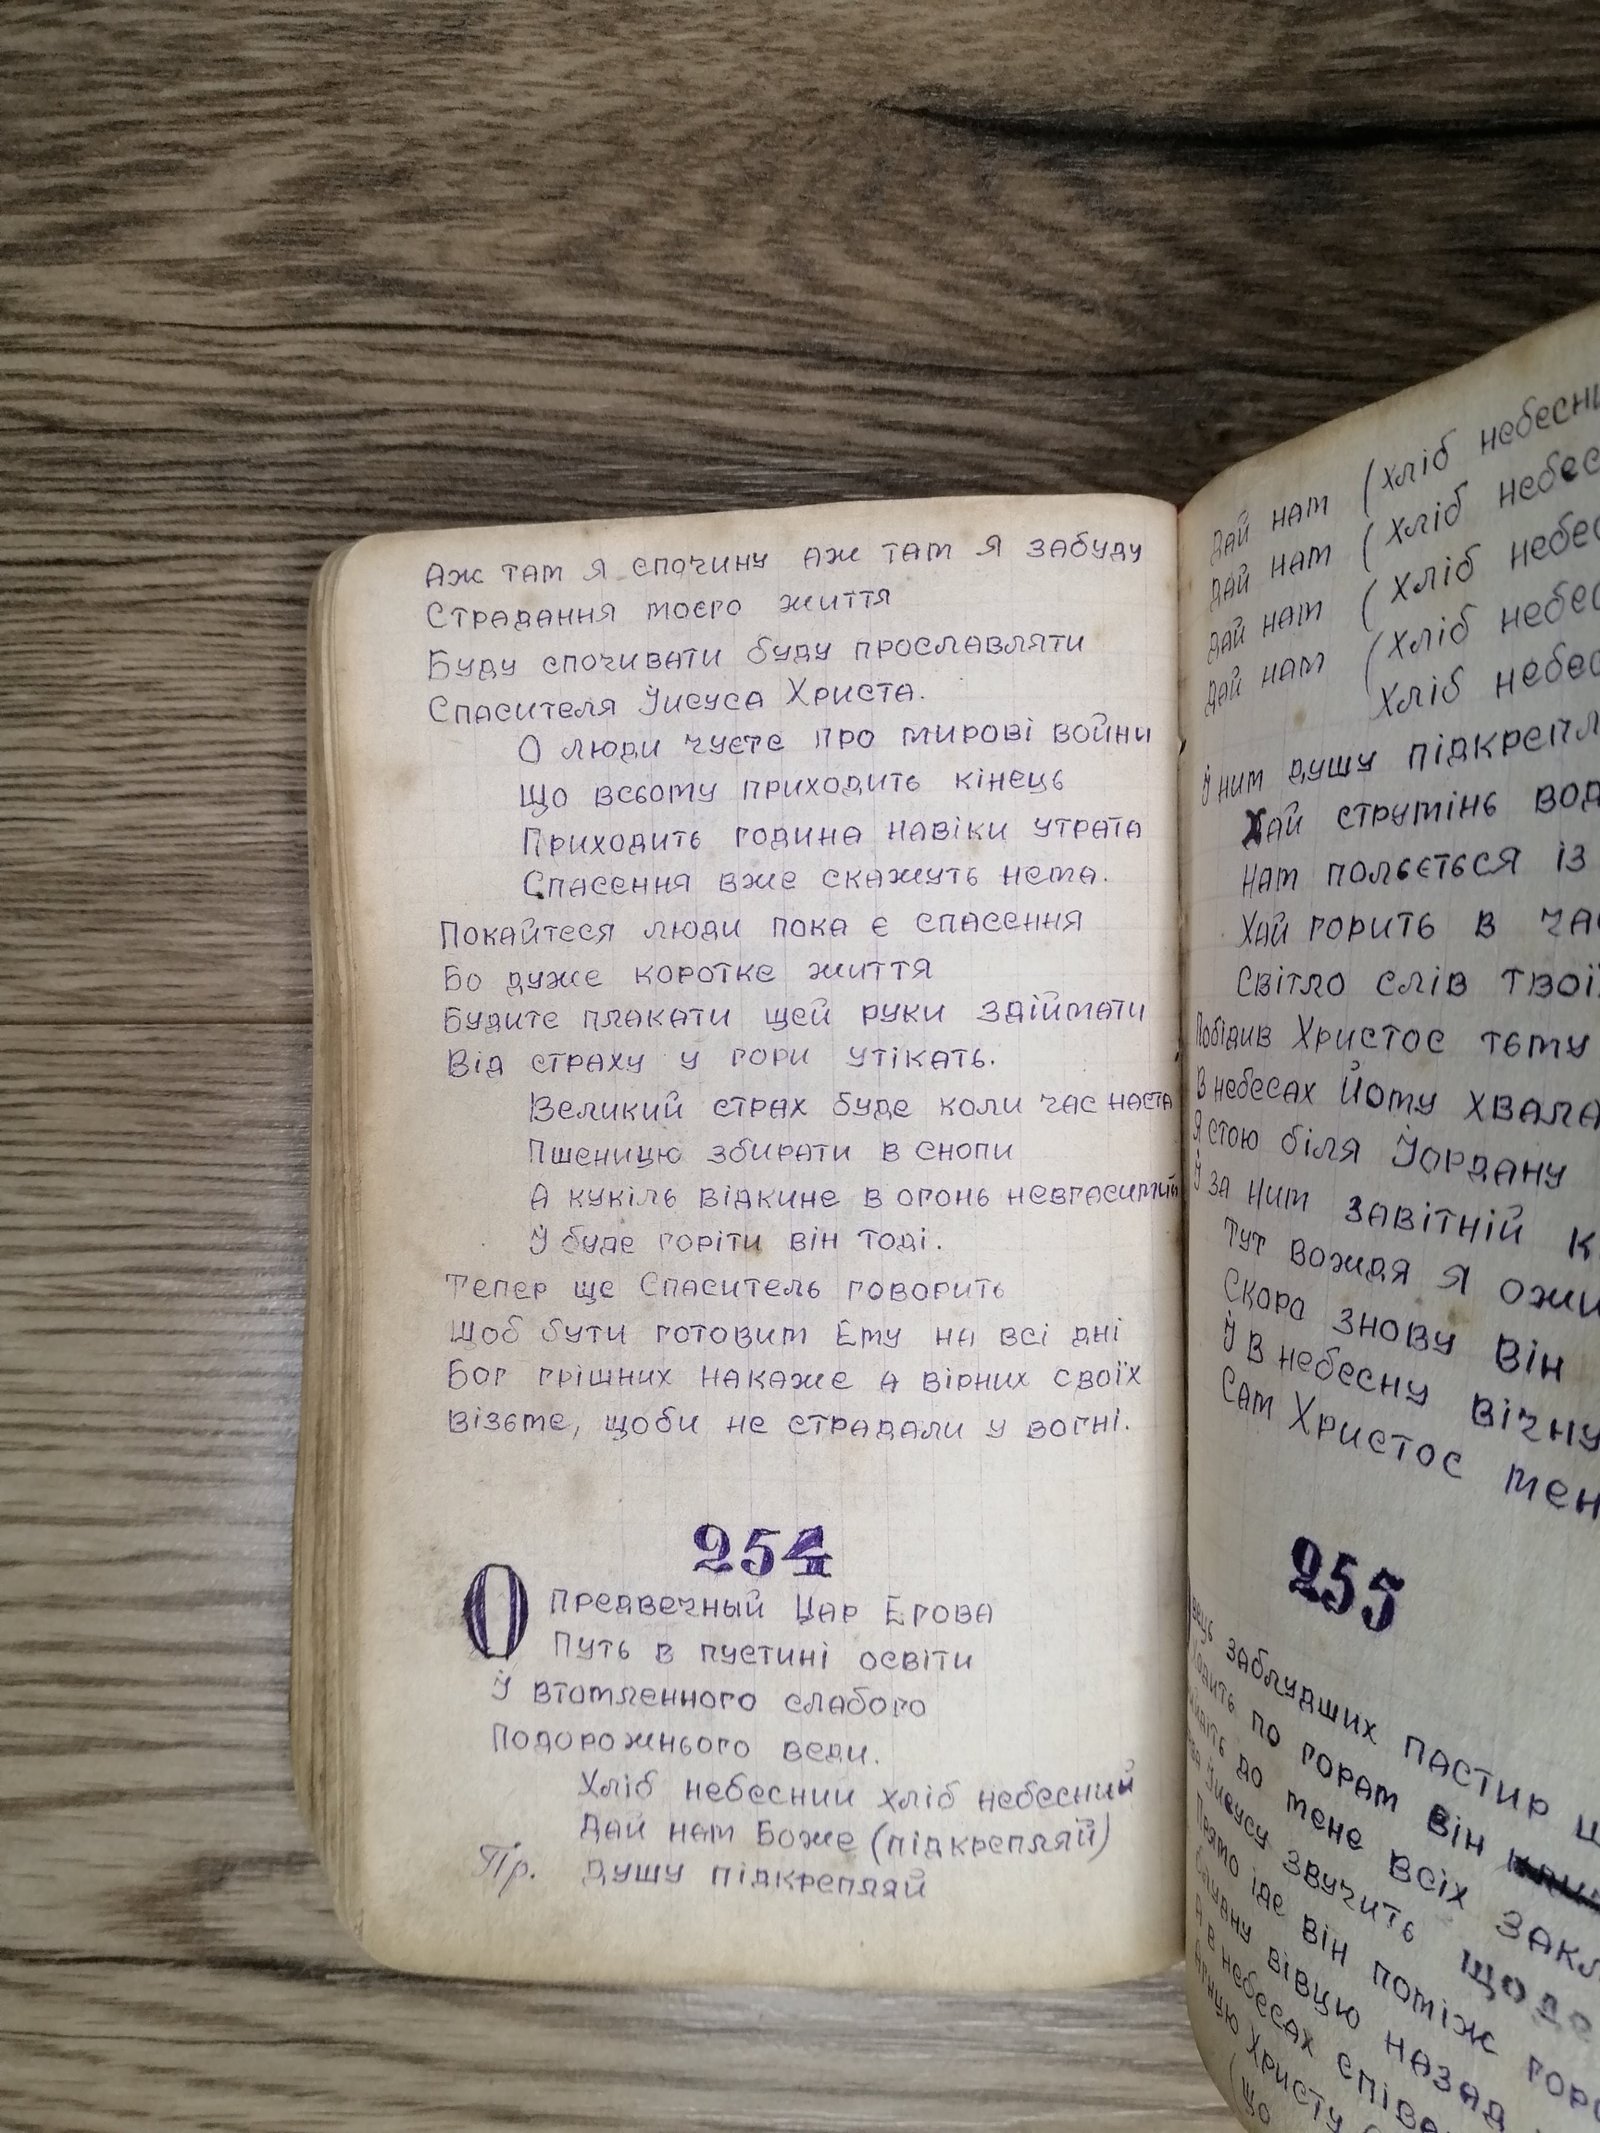 Аж там я спочину аж там я забуду
Страдання моєго життя
Буду спочивати буду прославляти
Спасителя Йисуса Христа.
О люди чуєте про мирові войни
Що всьому приходить кінець
Приходить година навіки утрата
Спасення вже скажуть нема.
Покайтеся люди пока є спасення
Бо дуже коротке життя
Будите плакати щей руки здіймати
Від страху у гори утікать.
Великий страх буде коли час наста
Пшеницю збирати в снопи
А кукіль відкине в огонь невгасимий
Й буде горіти він тоді.
Тепер ще Спаситель говорить
Щоб бути готовим Ему на всі дні
Бог грішних накаже а вірних своїх
Візьме, щоби не страдали у вогні.
254
О Предвечный Цар Егова
Путь в пустині освіти
Й втомленного слабого
Подорожнього веди.
Хліб небесний хліб небесний
Дай нам Боже (підкрепляй)
Пр. душу підкрепляй
Дай нам (хліб
Дай нам (хліб
Дай нам (хліб
Дай нам (хліб
Хліб
Й ним душу
Хай струмінь
Нам пользеться із
Хай горить в
Світло слів
Побідив Христос тьму
В небесах Йому хвала
Я стою біля Йордану
Й за ним завітній
Тут вождя я
Скоро знову він
Й в небесну вічну
Сам Христос
255
заблудших пастир
по горам він
до мене всіх
Йисусу звучить
Прямо іде він поміж
вівцю назад
А в небесах
Христу
(що